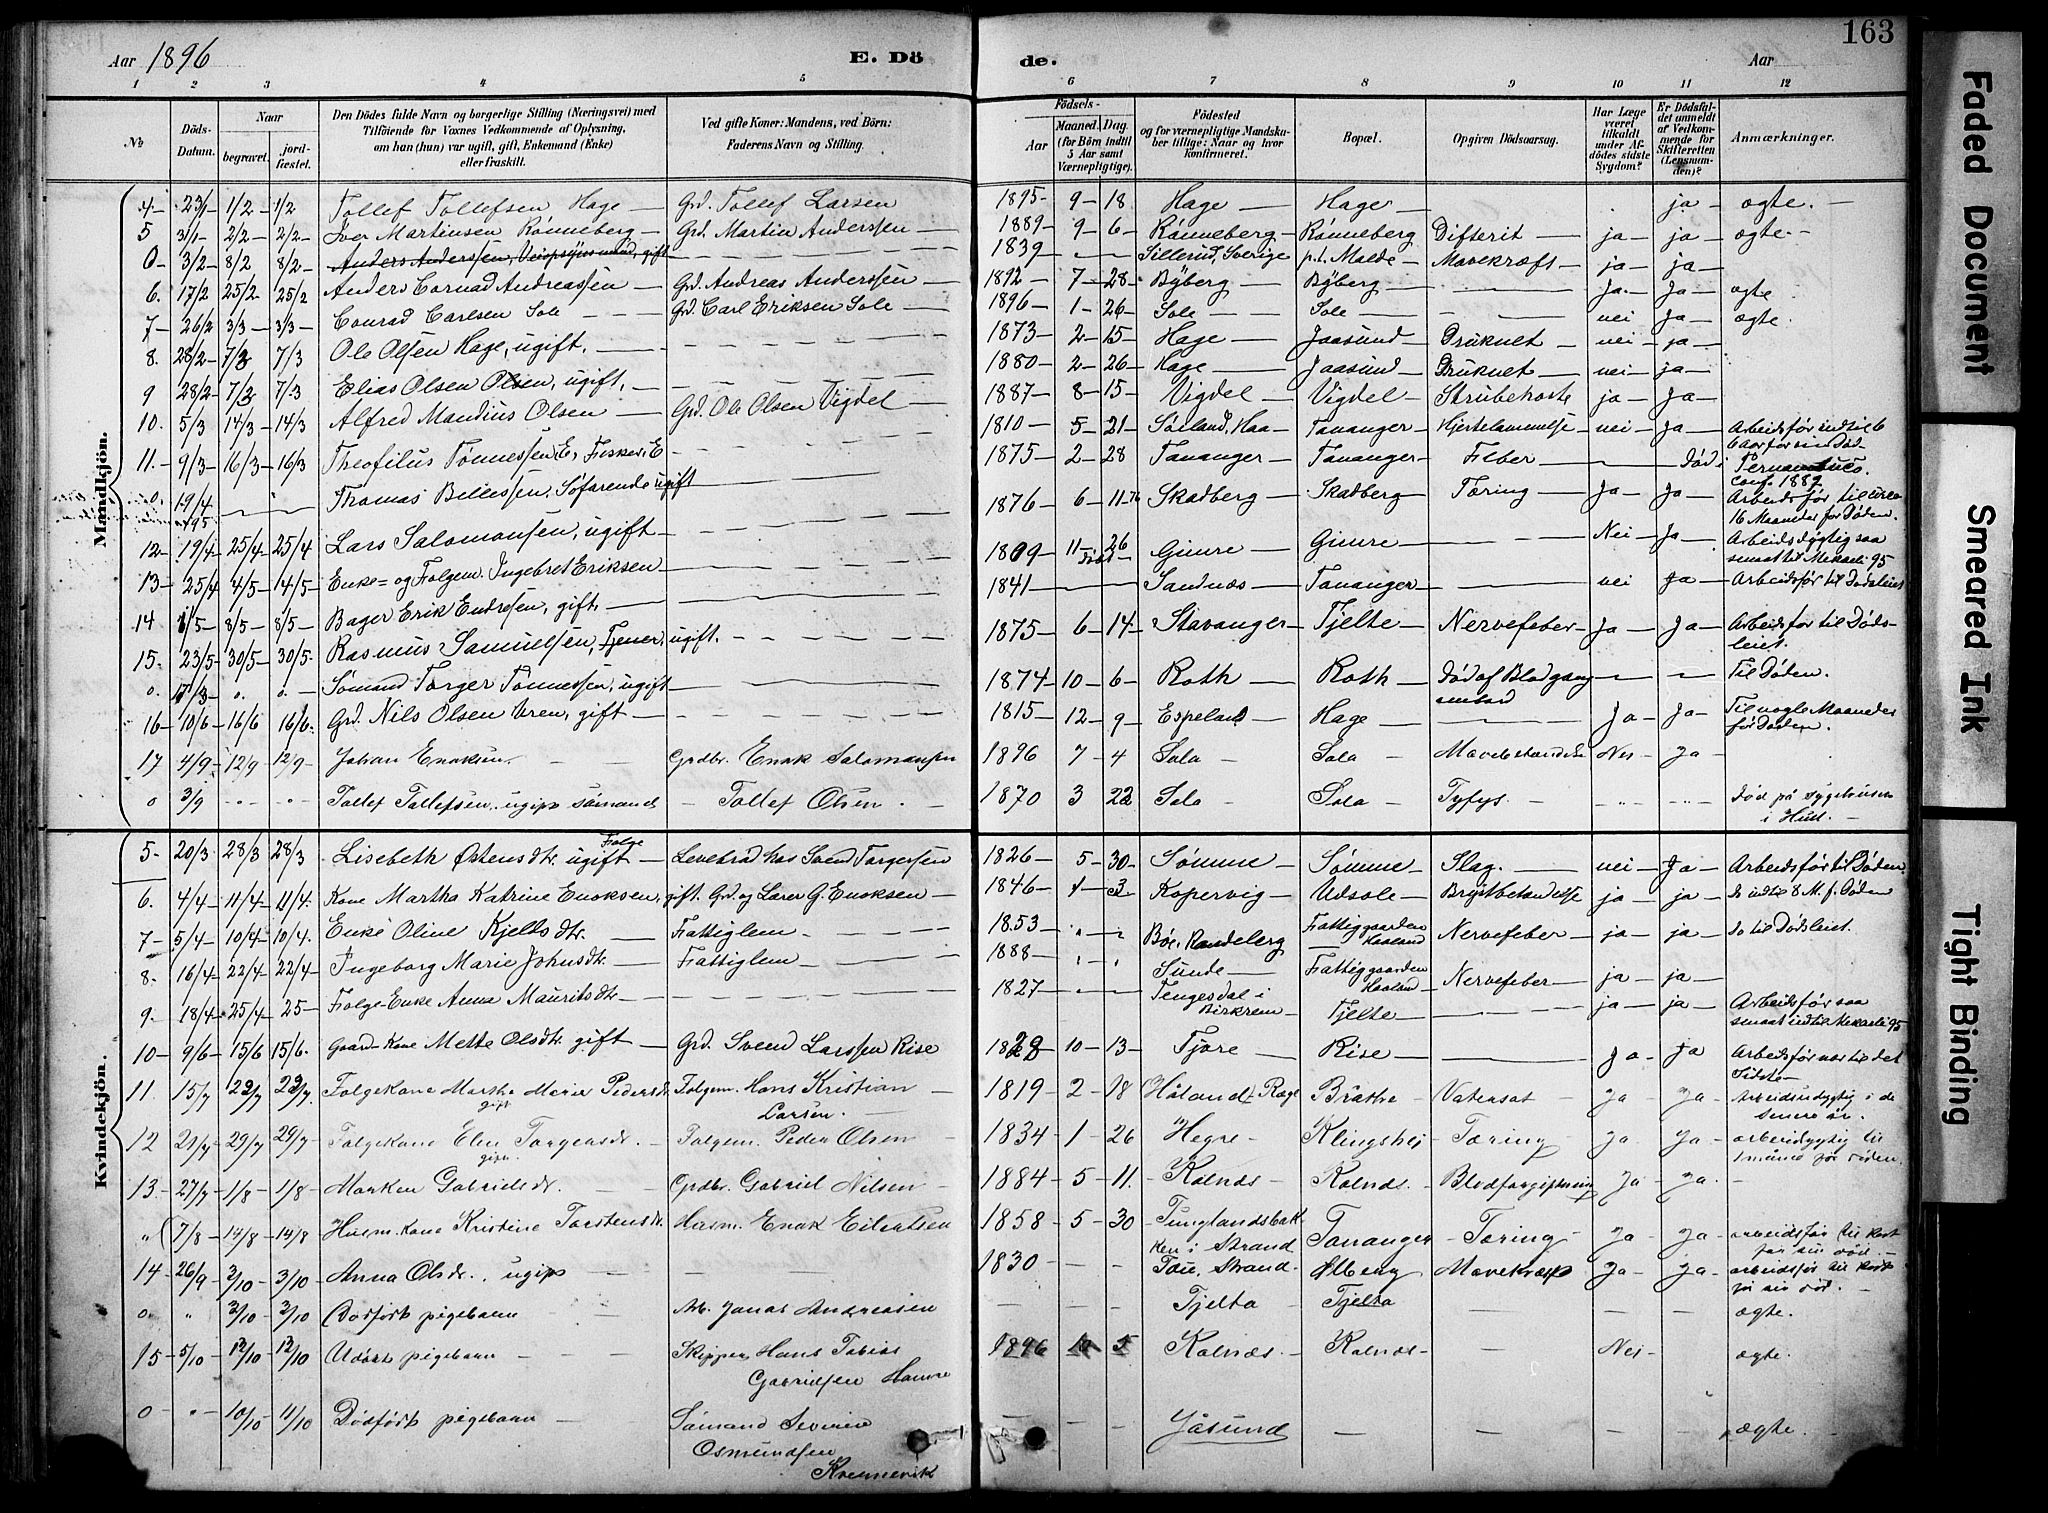 Aar 1896 E. Dö de. Aar 163
1 2 3 4 5 6 7 8 9 10 11 12
No Döds-Datum. Naar begravet. jordfæstet. Den Dödes fulde Navn og borgerlige Stilling (Næringsvei) med Tilföiende for Voxnes Vedkommende af Oplysning, om han (hun) var ugift, gift, Enkemand (Enke) eller fraskilt. Ved gifte Koner: Mandens, ved Börn: Faderens Navn og Stilling. Födsels- Aar Maaned. Dag. (for Börn indtil 5 Aar samt Værnepligtige). Födested og for værnepligtige Mandskaber tillige: Naar og hvor konfirmeret. Bopæl. Opgiven Dödsaarsag. Har Læge været tilkaldt under Afdödes sidste Sygdom? Er Dödsfaldet anmeldt af Vedkommende for Skifteretten (Lensmanden)? Anmærkninger.
Mandkjön.
4 23/1 1/2 1/2 Tollef Tollefsen Hage Grd. Tollef Larsen 1895 9 18 Hage Hage ja ægte.
5 31/1 2/2 2/2 Iver Martinsen Rønneberg Grd. Martin Anderssen 1889 9 6 Rønneberg Rønneberg Difterit ja ja ægte.
0 3/2 8/2 8/2 Anders Anderssen, gift 1839 Sillerud, Sverige p.t. Malde Mavekræft ja ja
6. 17/2 25/2 25/2 Anders Cornad Andreassen Grd. Andreas Anderssen 1892 7 28 Byberg Byberg Ja Ja ægte
7 26/2 3/3 3/3 Conrad Carlsen Sole Grd. Carl Eriksen Sole 1896 1 26 Sole Sole nei Ja ægte.
8. 28/2 7/3 7/3 Ole Olsen Hage, ugift. 1873 2 15 Hage Jaasund Druknet nei ja
9 28/2 7/3 7/3 Elias Olsen Olsen, ugift. 1880 2 26 Hage Jaasund Druknet nei ja
10. 5/3 14/3 14/3 Alfred Mandius Olsen Grd. Ole Olsen Vigdel 1887 8 15 Vigdel Vigdel Strubehoste ja Ja
11. 9/3 16/3 16/3 Theofilus Tønnessen E, Fisker, E 1810 5 21 Sørland, Haa Tananger Hjertelammelse nei Ja Arbeidsfør indtil 6
6 aar før sin Død
0. 19/4 95 Thomas Bellessen, Søfarende ugift 1875 2 28 Tananger Tananger Feber Død i Pernambuco.
Conf. 1889
12 19/4 25/4 25/4 Lars Salomonsen, ugift 1876 6 11 Skadberg Skadberg Tæring Ja Ja Arbeidsfør til circa
16 Maaneder før Døden.
13 25/4 4/5 14/5 Enke= og Folgem. Ingebret Eriksen 1809 11 26 Gimre Gimre Nei Ja Arbeidsdygtig saa
smaat til Mekaeli 95
14 1/5 8/5 8/5 Bager Erik Endresen, gift. 1841 Sandnæs Tananger nei Ja Arbeidsfør til Dødsleiet
15. 23/5 30/5 30/5 Rasmus Samuelsen, Tjener, ugift. 1875 6 14 Stavanger Tjelte Nervefeber Ja Ja Arbeidsfør til Døds-
leiet.
0. 17/3 0. 0. Sømand Torger Tønnessen, ugift 1874 10 6 Roth Roth Død af Blodgang
ombord Til Døden.
16 10/6 16/6 16/6. Grd. Nils Olsen Vren, gift 1815 12 9 Espeland Hage Ja Ja Til nogle Maaneder
før Døden.
17 4/9 12/9 12/9 Johan Enoksen Grdbr. Enok Salomonsen 1896 7 4 Sola Sola Nei Ja
0 3/9 Tollef Tollefsen, ugift sømand Tollef Olsen 1870 3 22 Sola Sola Tyfys Død på sygehuset
i Hull.
Kvindekjön.
5. 20/3 28/3 28/3 Lisebeth Østensdtr. ugift Folge Levebrød hos Svend Torgersen 1826 5 30 Sømme Sømme Slag. nei Ja Arbeidsfør til Døden
6. 4/4 11/4 11/4 Kone Martha Katrine Enoksen, gift. Grd og Lærer G. Enoksen 1846 1 3 Kopervig Udsole Brystbetændelse ja ja Do indtil 8 M. f. Døden
7 5/4 10/4 10/4 Enke Oline Kjellsdtr. Fattiglem 1853 Bøe, Randeberg Fattiggaarden
Haaland Nervefeber ja ja Do til Dødsleiet.
8. 16/4 22/4 22/4 Ingeborg Marie Johnsdtr. Fattiglem 1888 Sunde Fattiggaarden
Haaland Nervefeber ja ja
9. 18/4 25/4 25 Folge-Enke Anna Mauritsdtr 1827 Tengesdal i
Birkrem Tjelte ja ja Arbeidsfør saa
smaat indtil Mekaeli 95
10 9/6 15/6 15/6. Gaard-Kone Mette Olsdtr. gift Grd. Svend Larssen Rise 1828 10 13 Tjore Rise Ja Ja Arbeidsfør til det
Sidste
11 15/7 22/7 22/7. Folgekone Marthe Marie Pedersdtr. Folgem. Hans Kristian
gift Larsen. 1819 2 18 Håland, Ræge Bråstre Vatersot Ja Ja Arbeidsudygtig i de
senere år.
12 21/7 29/7 29/7 Folgekone Elen Torgersdr. Folgem. Peder Olsen
gift. 1834 1 26 Hegre Klingshej Tæring Ja Ja arbeidygtig til
1 måned før døden.
13. 27/7 1/8 1/8 Marken Gabrielsdr. Grdbr. Gabriel Nilsen 1884 5 11. Kolnæs Kolnæs. Blodforgiftning Ja Ja.
" 7/8 14/8 14/8 Husm.kone Kristine Torstensdr. Husm. Enok Eilertsen 1858 5 30 Tunglandsbak-
ken i Strand Tananger Tæring Ja Ja arbeidsfør til kort
før sin død.
14 26/9 3/10 3/10 Anna Olsdr., ugift 1830 Tou, Strand. Ølberg Mavekræft Ja Ja arbeidsfør til kort
før sin død.
0 " 3/10 3/10 Dødfødt pigebarn Arb. Jonas Andreasen Tjelta Tjelta ægte.
15 5/10 12/10 12/10 Udøbt pigebarn Skipper Hans Tobias
Gabrielsen Hamre 1896 10 5 Kolnæs Kolnæs Nei ægte.
0 " 10/10 11/10 Dødfødt pigebarn Sømand Severin
Osmundsen
Kvernevik Jåsund ægte.
Faded Document
Smeared Ink
Tight Binding